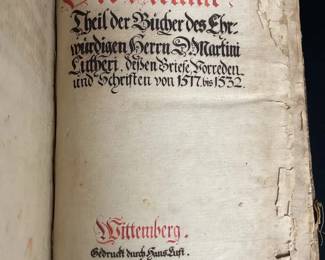 Theil der Bücher des Ehr-
würdigen Herrn D. Martini
Lutheri, deßen Briefe, Vorreden
und Schriften von 1517. bis 1532.
Wittemberg.
Gedruckt durch Hans Luft.